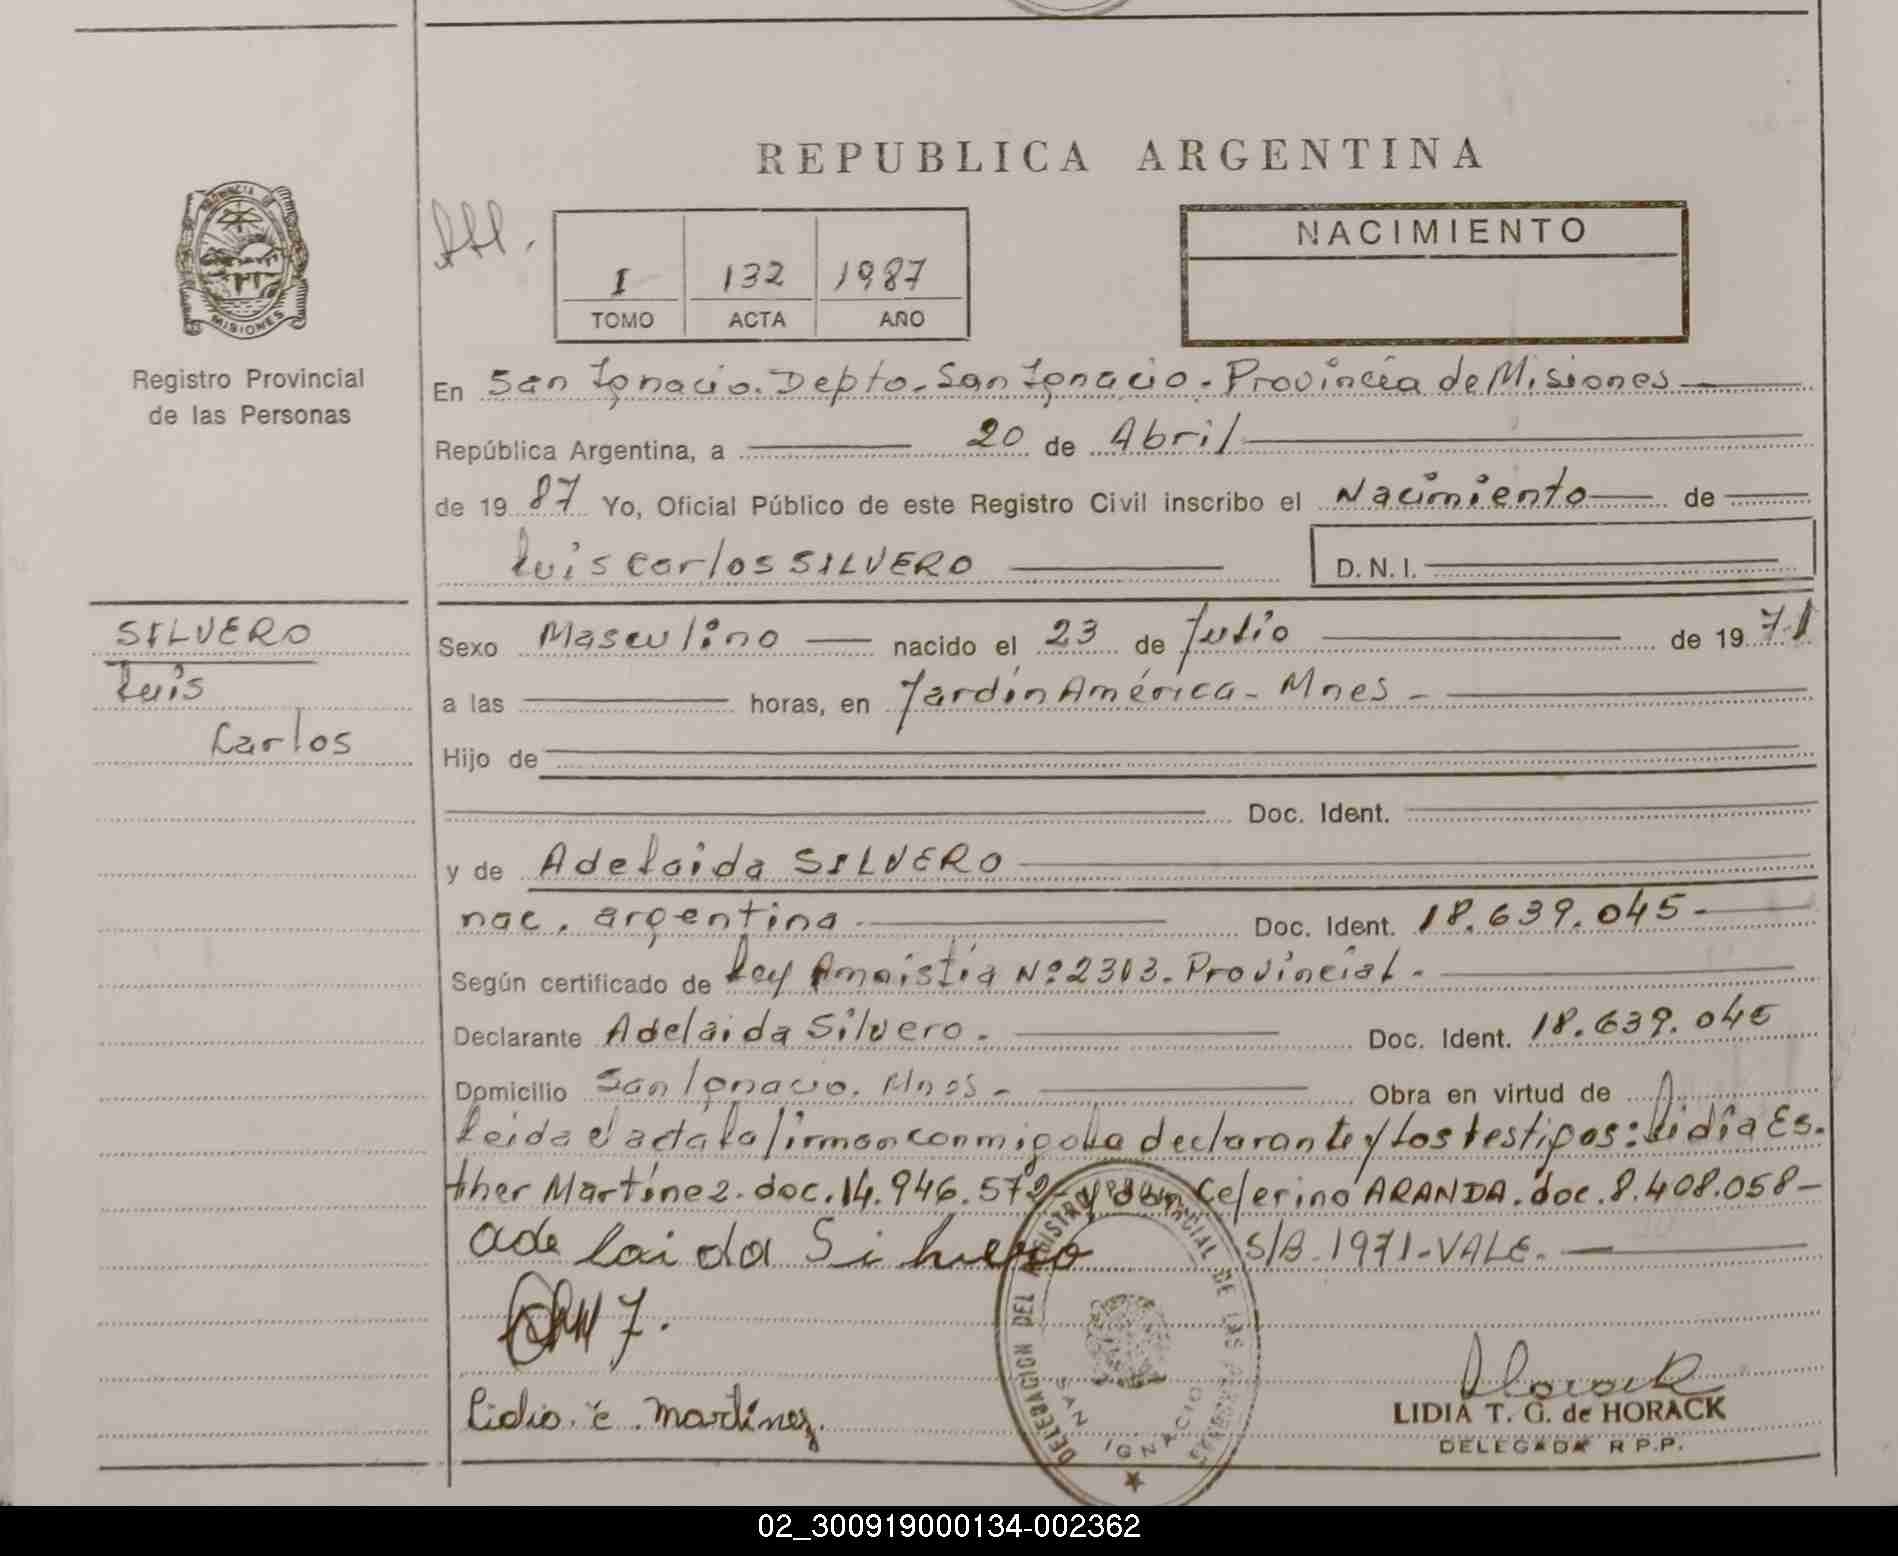 REPUBLICA ARGENTINA
PROVINCIA DE
MISIONES
Registro Provincial
de las Personas
I 132 1987
TOMO ACTA AÑO
NACIMIENTO
En San Ignacio. Depto. San Ignacio. Provincia de Misiones
República Argentina, a 20 de Abril
de 1987 Yo, Oficial Público de este Registro Civil inscribo el Nacimiento de
Luis Carlos SILVERO D.N.I.
SILVERO
Luis
Carlos
Sexo Masculino nacido el 23 de Julio de 1971
a las horas, en Jardín América - Mnes -
Hijo de
Doc. Ident.
y de Adelaida SILVERO
nac. argentina Doc. Ident. 18.639.045-
Según certificado de Ley Amnistía Nº 2303. Provincial.
Declarante Adelaida Silvero. Doc. Ident. 18.639.045
Domicilio San Ignacio. Mnes - Obra en virtud de
Leida el acta la firman conmigo la declarante y los testigos: Lidia Es-
ther Martínez. doc. 14.946.572- y don Celerino ARANDA. doc. 8.408.058-
adelaida Silvero S/B. 1971-VALE.
Lidia. E. Martínez.
DELEGACION DEL REGISTRO PROVINCIAL DE LAS PERSONAS
SAN IGNACIO
Horack
LIDIA T. G. de HORACK
DELEGADA R.P.P.
02_300919000134-002362